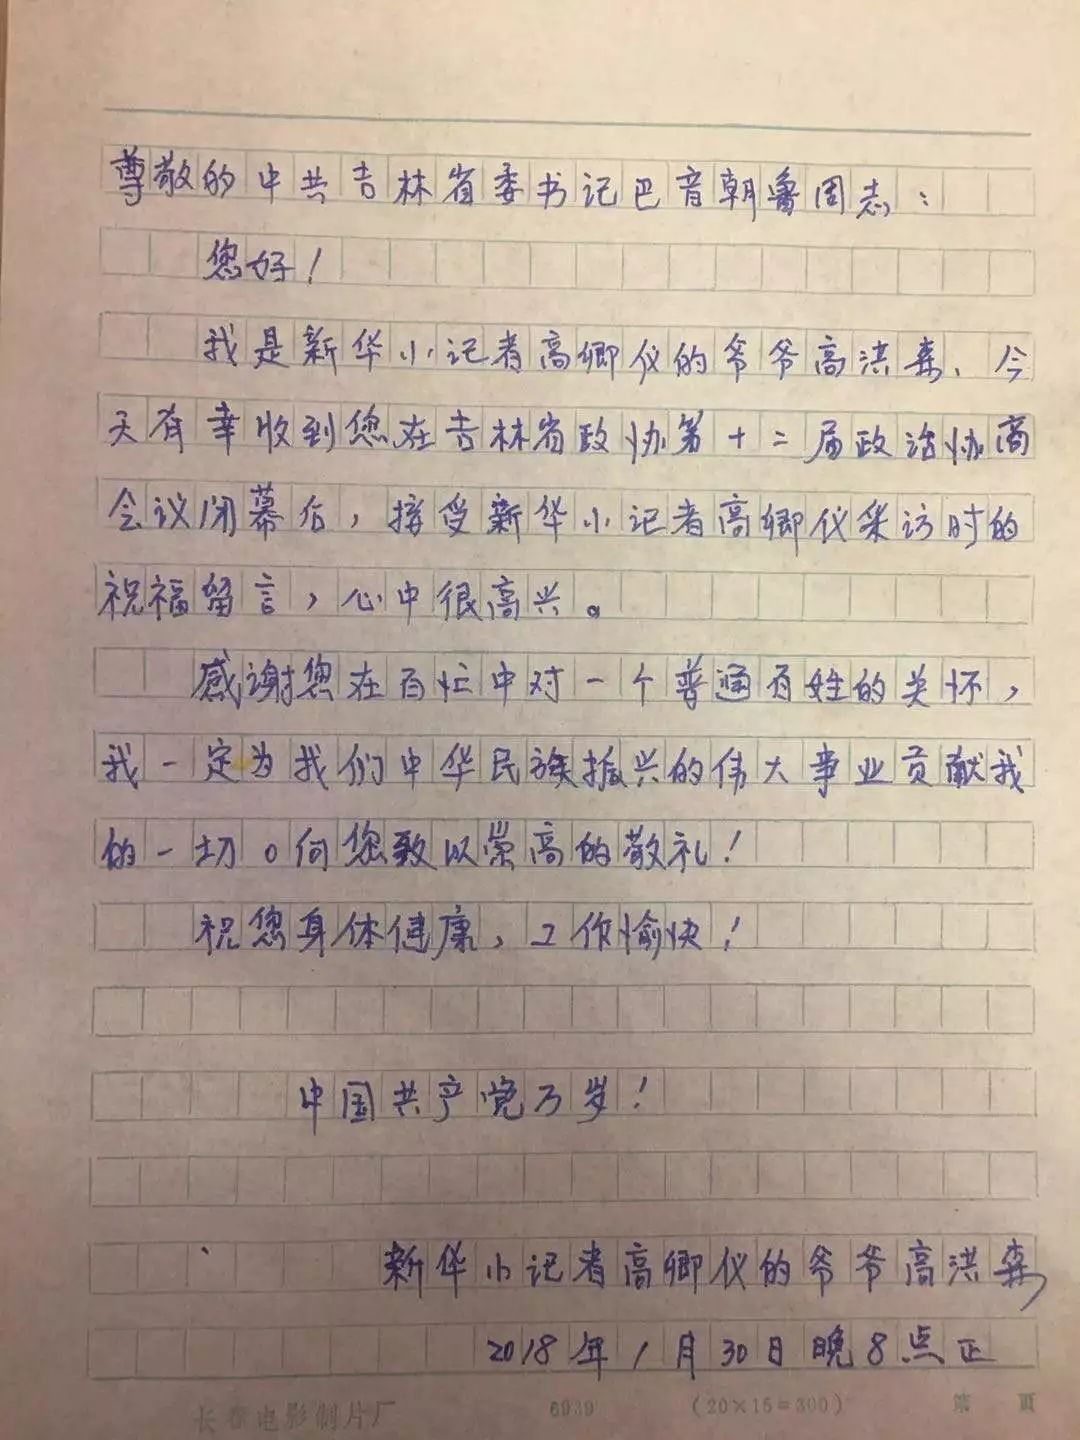 尊敬的中共吉林省委书记巴音朝鲁同志：
您好！
我是新华小记者高卿仪的爷爷高洪森、今
天有幸收到您在吉林省政协第十二届政治协商
会议闭幕后，接受新华小记者高卿仪采访时的
祝福留言，心中很高兴。
感谢您在百忙中对一个普通百姓的关怀，
我一定为我们中华民族振兴的伟大事业贡献我
的一切。向您致以崇高的敬礼！
祝您身体健康，工作愉快！
中国共产党万岁！
新华小记者高卿仪的爷爷高洪森
2018年1月30日晚8点正
长春电影制片厂 6939 (20×15=300) 第 页